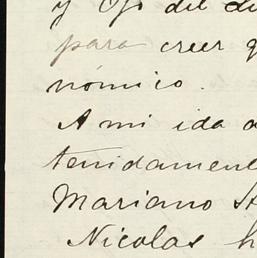 y Ojo del
para creer
nómico.
A mi ida
tenidamente
Mariano
Nicolas h